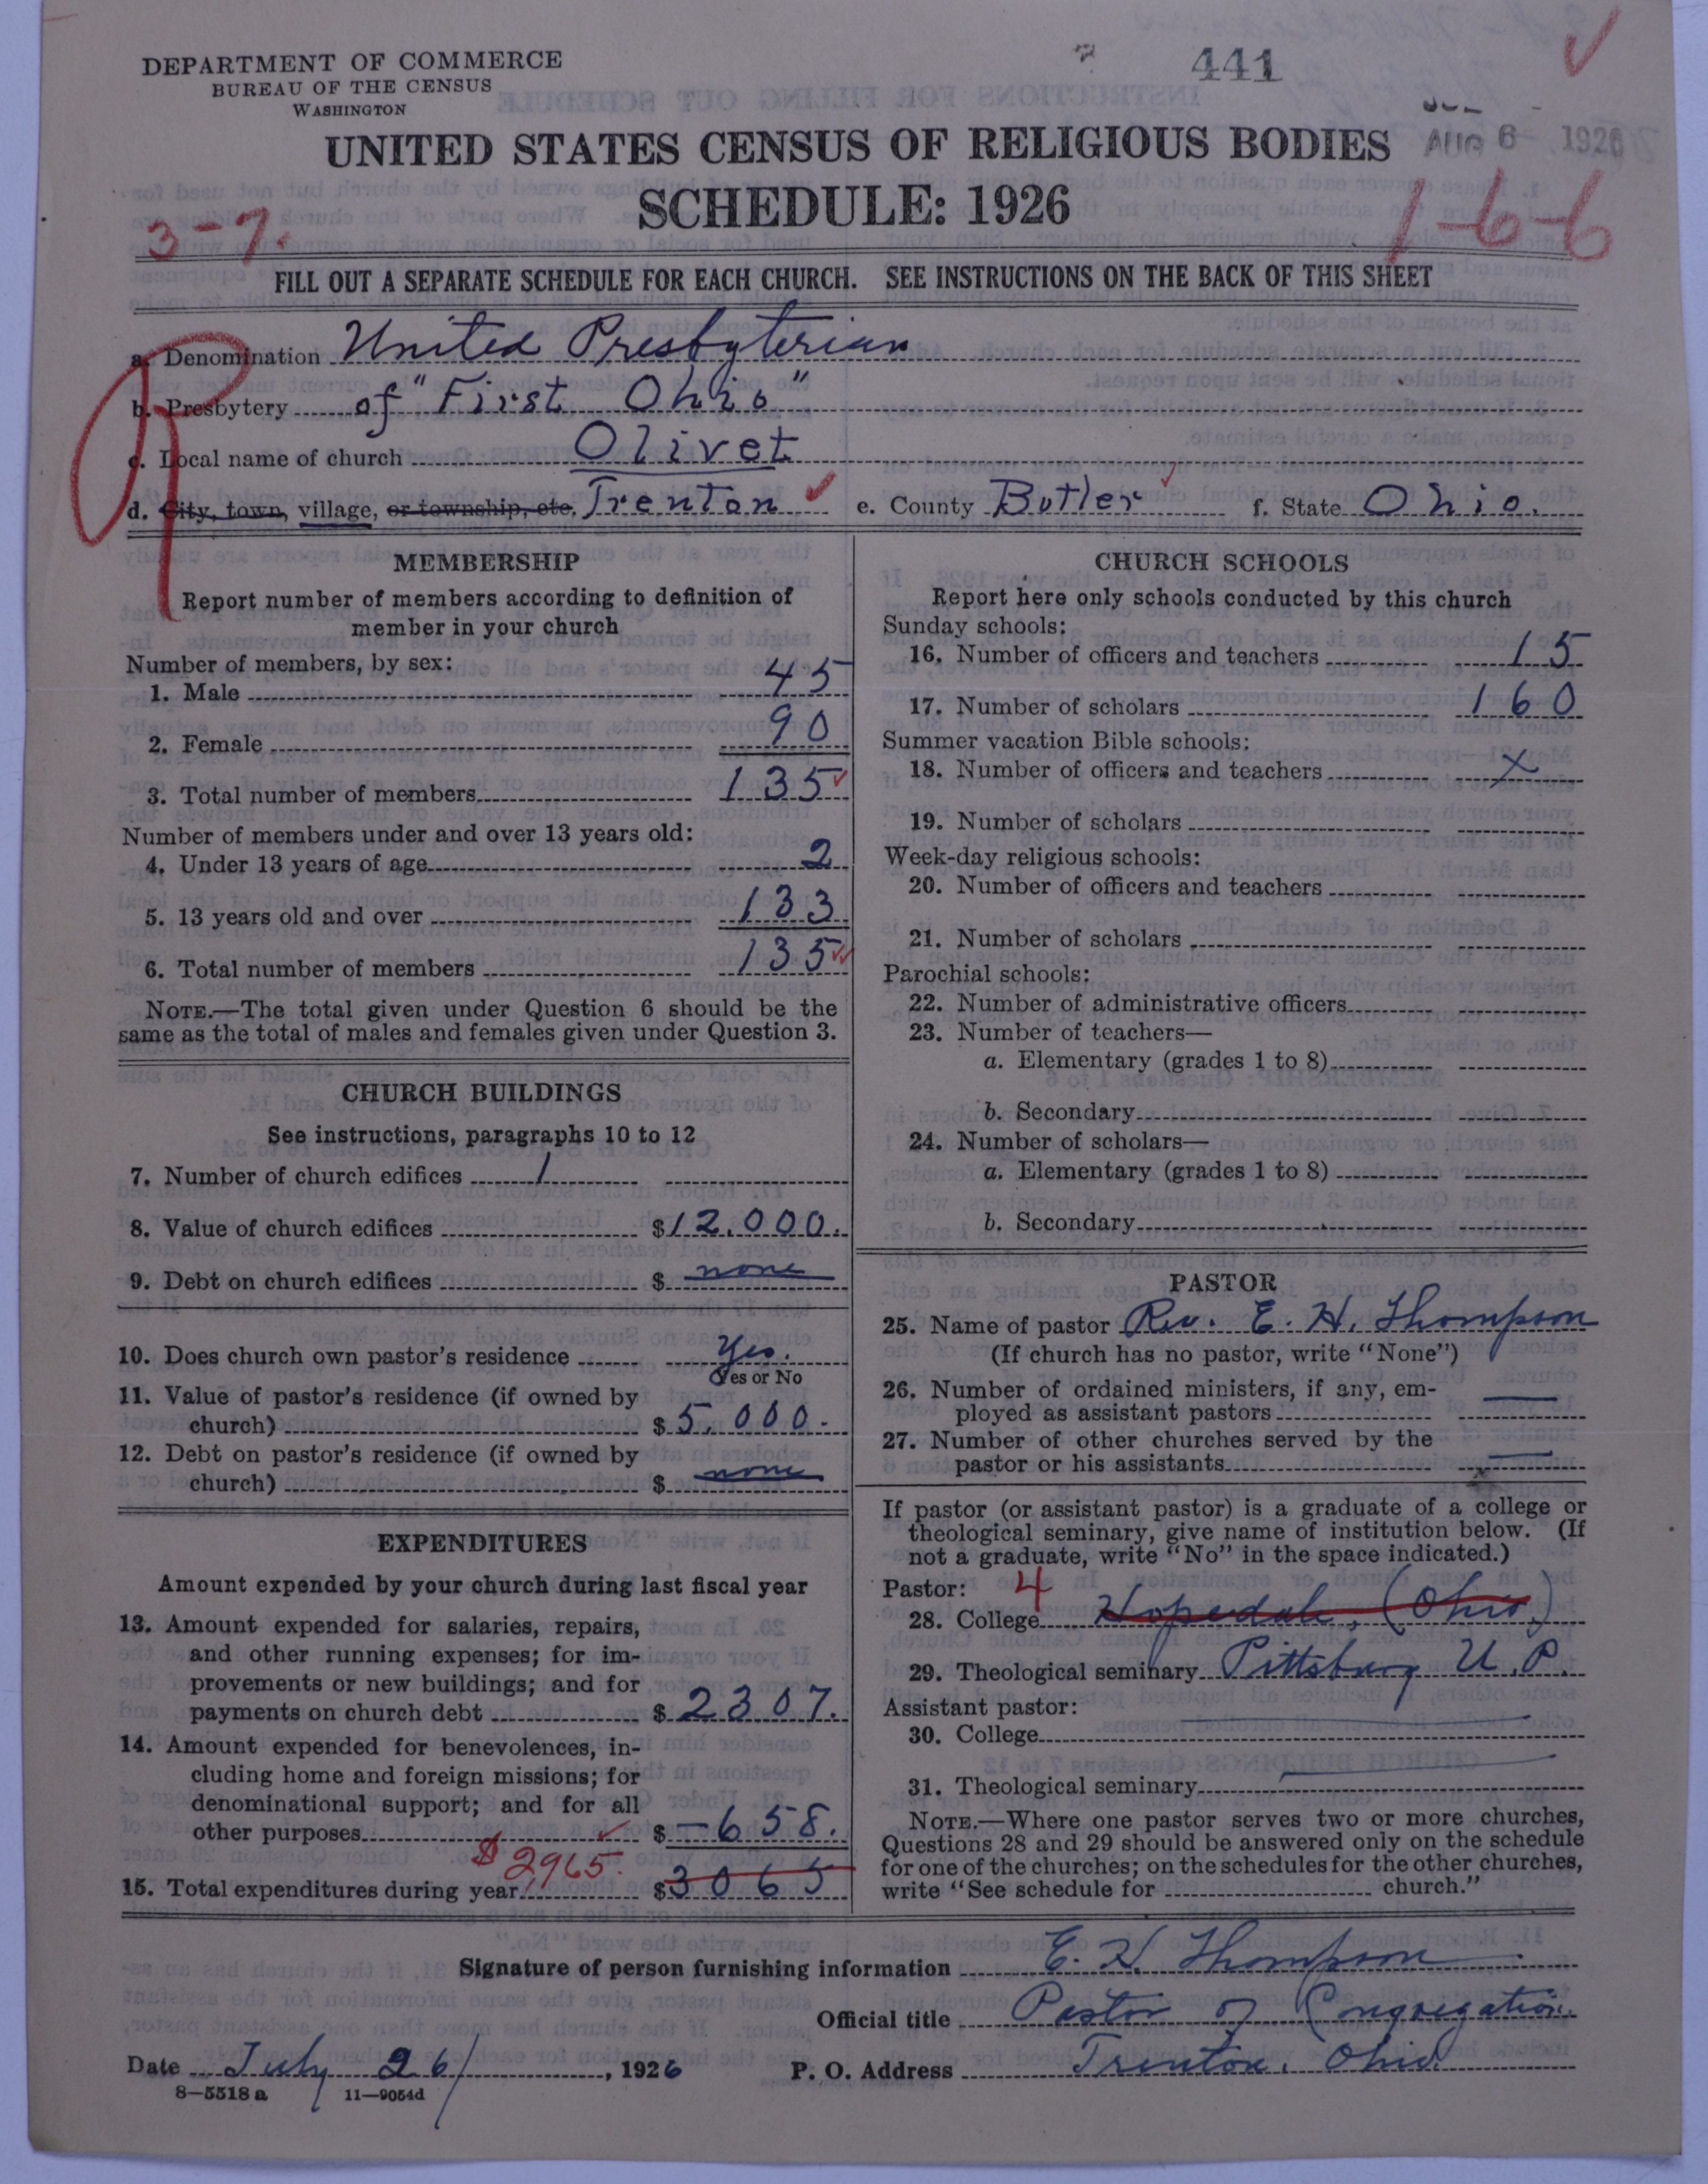 DEPARTMENT OF COMMERCE
BUREAU OF THE CENSUS
WASHINGTON
441
AUG 6 1926
UNITED STATES CENSUS OF RELIGIOUS BODIES
SCHEDULE: 1926
3-7.
1-6-6
FILL OUT A SEPARATE SCHEDULE FOR EACH CHURCH. SEE INSTRUCTIONS ON THE BACK OF THIS SHEET
a. Denomination United Presbyterian
b. Presbytery of "First Ohio"
c. Local name of church Olivet
d. City, town, village, or township, etc. Trenton e. County Butler f. State Ohio.
MEMBERSHIP
Report number of members according to definition of
member in your church
Number of members, by sex:
1. Male 45
2. Female 90
3. Total number of members 135
Number of members under and over 13 years old:
4. Under 13 years of age 2
5. 13 years old and over 133
6. Total number of members 135
NOTE.—The total given under Question 6 should be the
same as the total of males and females given under Question 3.
CHURCH BUILDINGS
See instructions, paragraphs 10 to 12
7. Number of church edifices 1
8. Value of church edifices $12,000.
9. Debt on church edifices $ none
10. Does church own pastor's residence Yes.
Yes or No
11. Value of pastor's residence (if owned by
church) $5,000.
12. Debt on pastor's residence (if owned by
church) $ none
EXPENDITURES
Amount expended by your church during last fiscal year
13. Amount expended for salaries, repairs,
and other running expenses; for im-
provements or new buildings; and for
payments on church debt $2307.
14. Amount expended for benevolences, in-
cluding home and foreign missions; for
denominational support; and for all
other purposes $-658.
$2965.
15. Total expenditures during year $3065
CHURCH SCHOOLS
Report here only schools conducted by this church
Sunday schools:
16. Number of officers and teachers 15
17. Number of scholars 160
Summer vacation Bible schools:
18. Number of officers and teachers X
19. Number of scholars
Week-day religious schools:
20. Number of officers and teachers
21. Number of scholars
Parochial schools:
22. Number of administrative officers
23. Number of teachers—
a. Elementary (grades 1 to 8)
b. Secondary
24. Number of scholars—
a. Elementary (grades 1 to 8)
b. Secondary
PASTOR
25. Name of pastor Rev. E. H. Thompson
(If church has no pastor, write "None")
26. Number of ordained ministers, if any, em-
ployed as assistant pastors —
27. Number of other churches served by the
pastor or his assistants —
If pastor (or assistant pastor) is a graduate of a college or
theological seminary, give name of institution below. (If
not a graduate, write "No" in the space indicated.)
Pastor: 4
28. College Hopedale, (Ohio.)
29. Theological seminary Pittsburg U.P.
Assistant pastor:
30. College
31. Theological seminary
NOTE.—Where one pastor serves two or more churches,
Questions 28 and 29 should be answered only on the schedule
for one of the churches; on the schedules for the other churches,
write "See schedule for church."
Signature of person furnishing information E. H. Thompson
Official title Pastor of Congregation.
Date July 26, 1926 P. O. Address Trenton, Ohio.
8—5518 a 11—9054d